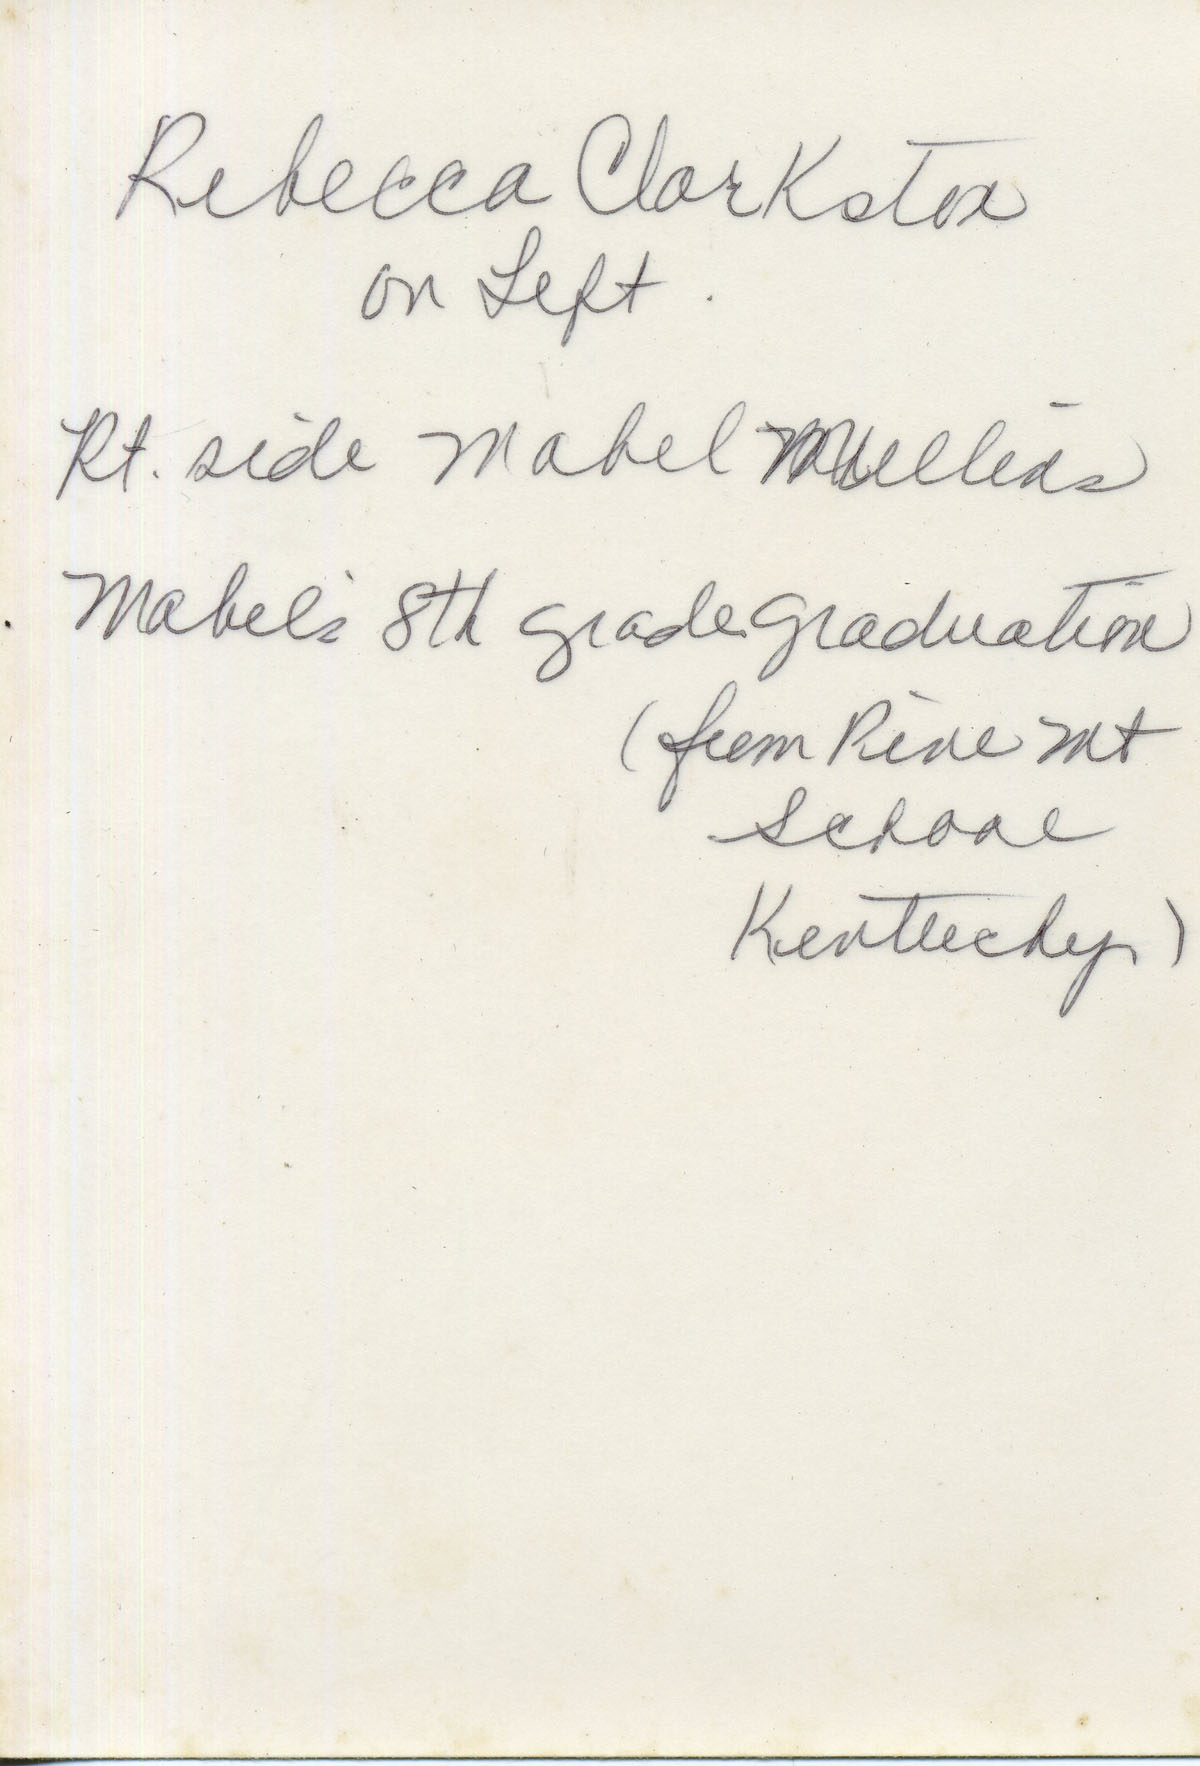 Rebecca Clarkston
on Left.
Rt. side Mabel Mullins
Mabel's 8th grade graduation
(from Pine Mt
School
Kentucky)